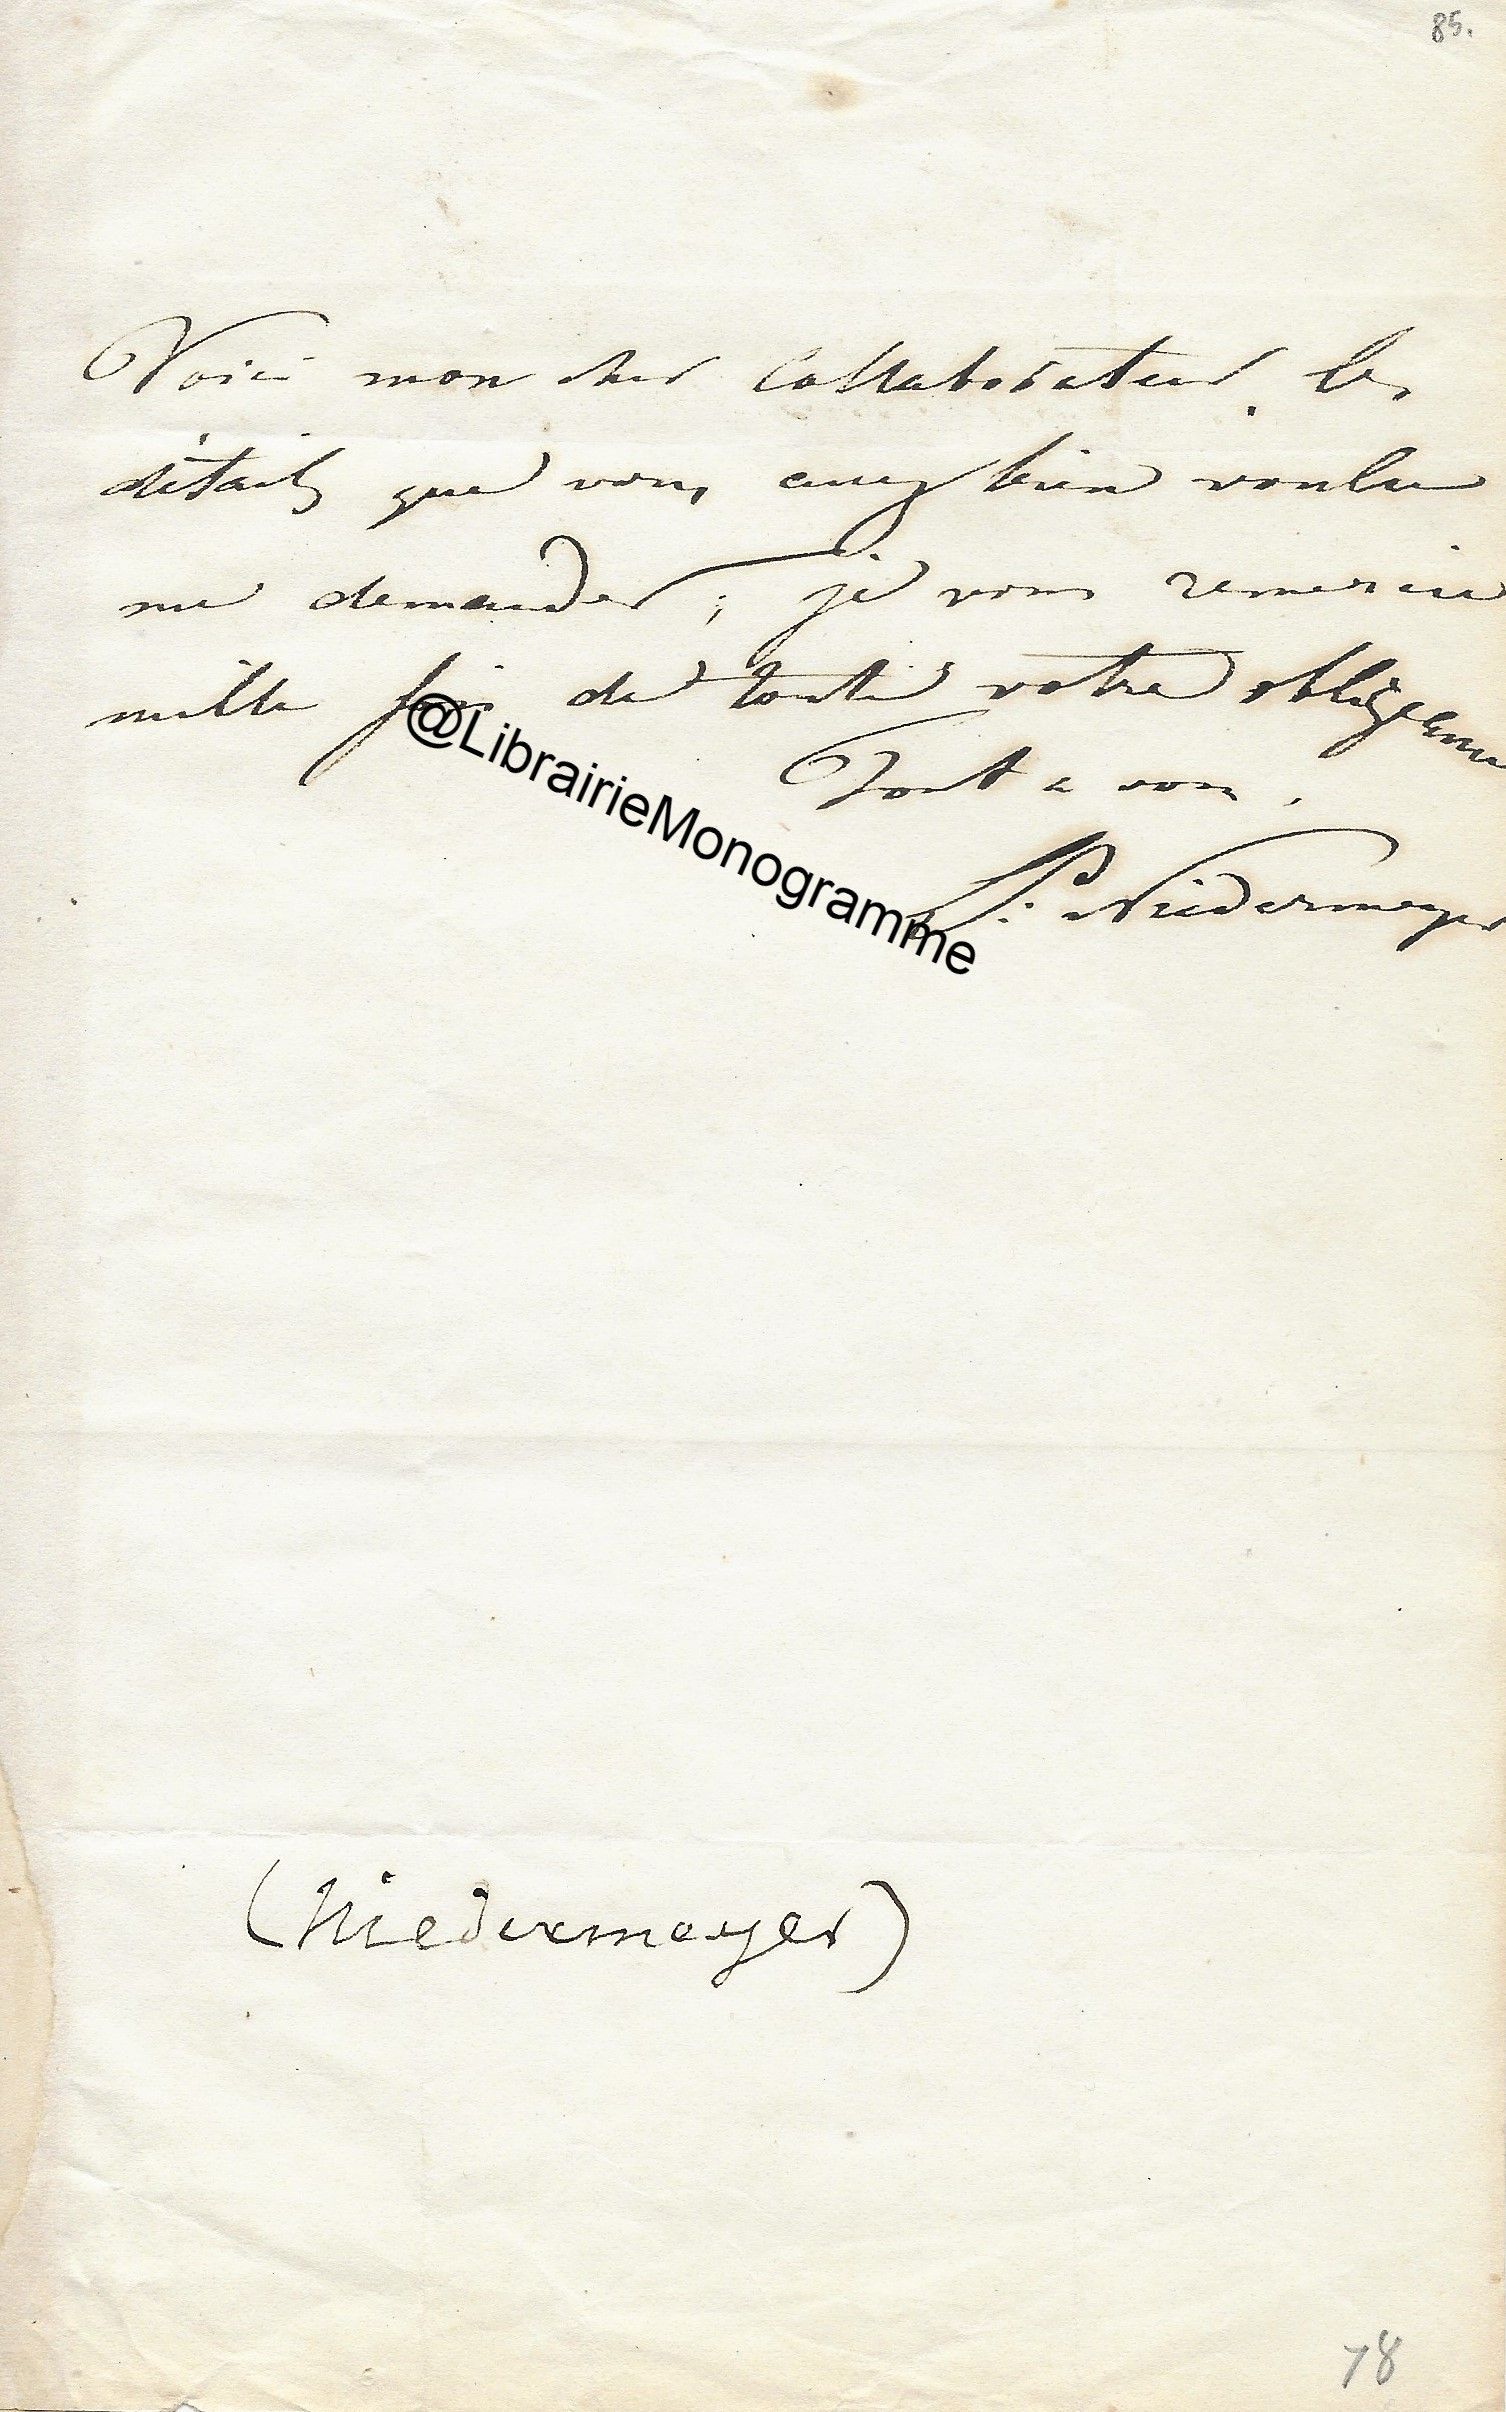 85.
Voici mon cher Collaborateur, les
détails que vous avez bien voulu
me demander ; je vous remercie
mille fois de toute votre obligeance
Tout a vous.
L. Niedermeyer
@LibrairieMonogramme
(Niedermeyer)
78